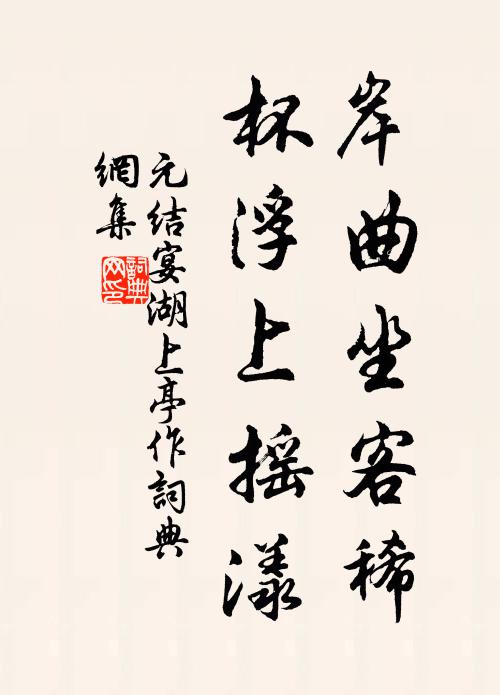 岸曲坐客稀
杯浮上摇漾
元结宴湖上亭作詞典
網集
詞典
网印